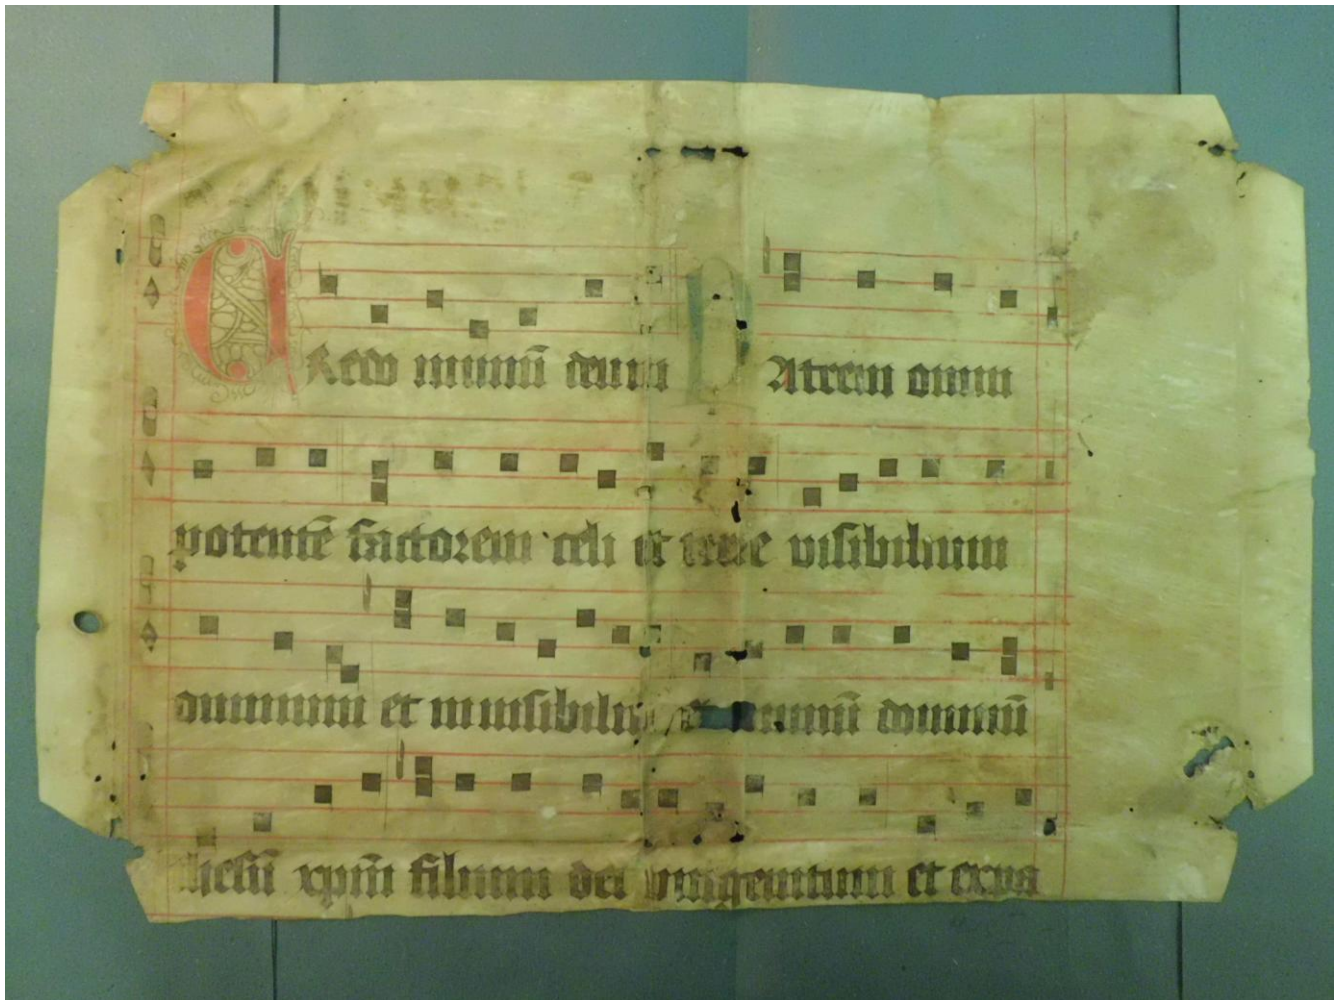 CRedo in unū deum PAtrem omni
potentē factorem celi et terre visibilium
omnium et in uisibiliū et in unū dominū
ihesū xp̄m filium dei vnigenitum et ex pa